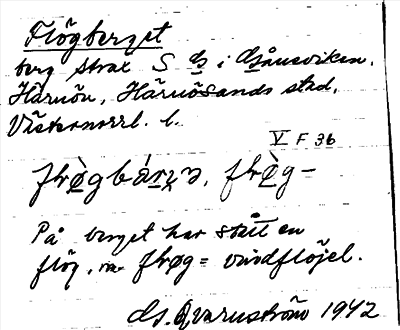 Flögberget
berg strax S G i Gånsviken.
Härnön, Härnösands stad,
Västernorrl. l.
V F 36
På berget har stått en
flög, = vindflöjel.
G. Qvarnström 1942